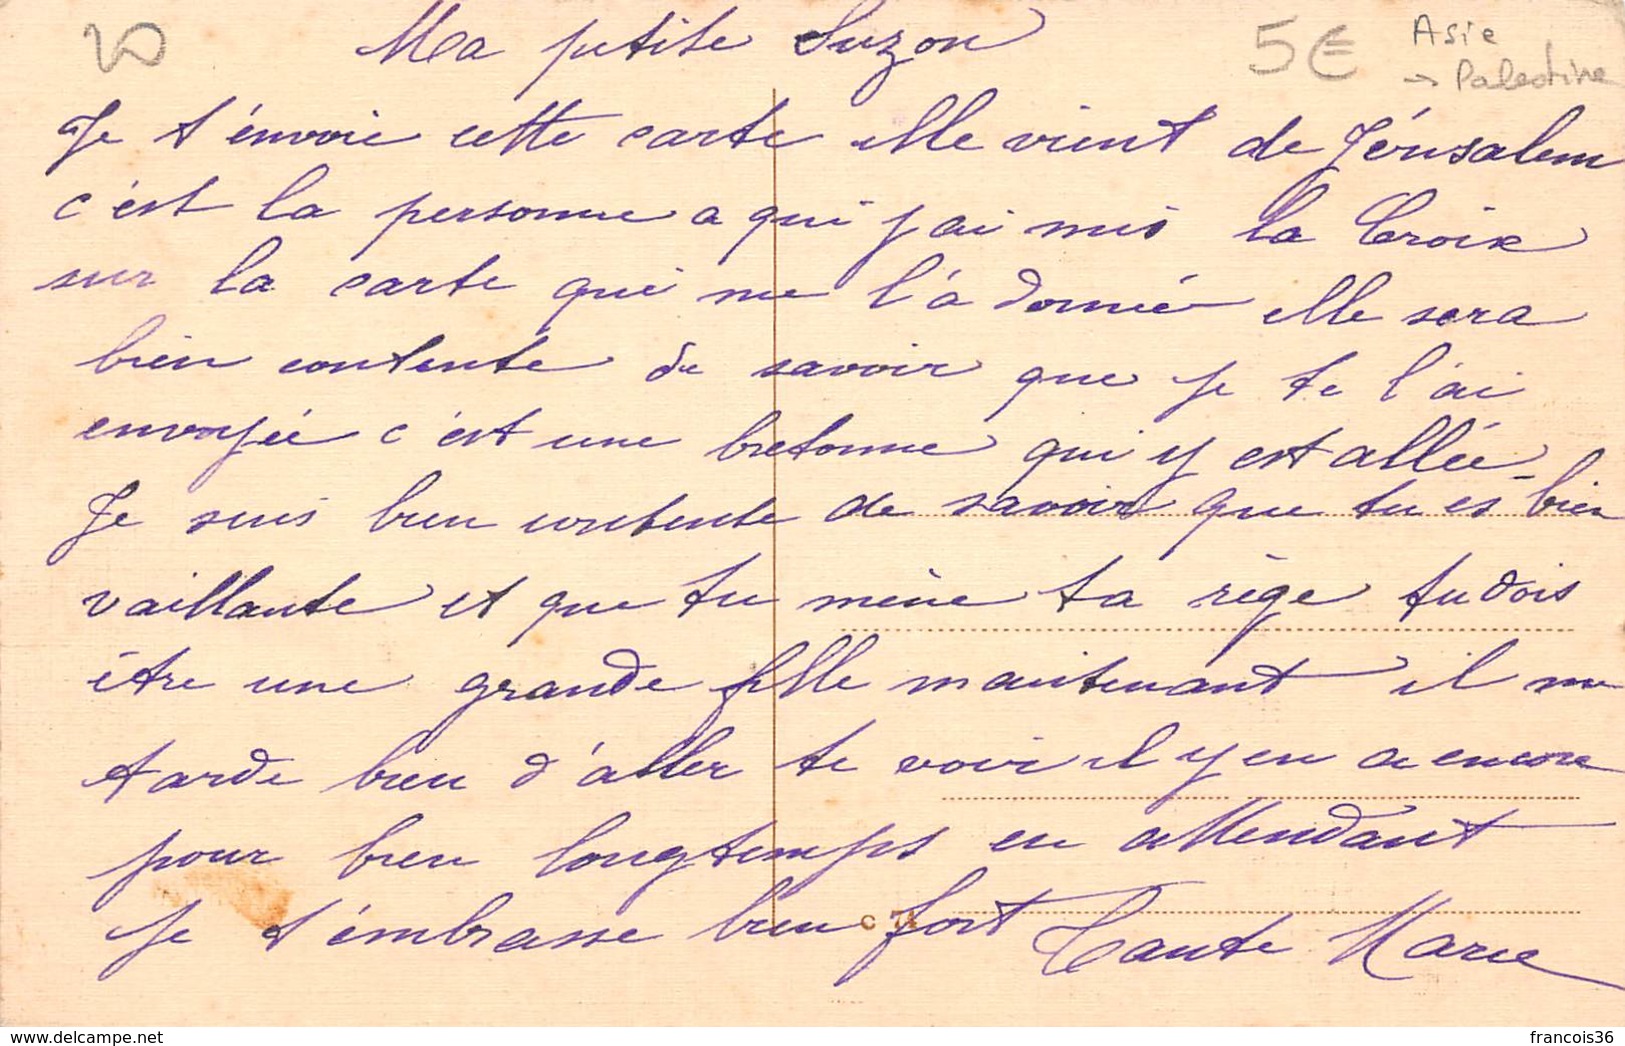 20
5€
Asie
→ Palestine
Ma petite Suzon
Je t'énvoie cette carte elle vient de Jérusalem
c'est la personne a qui j'ai mis la Croix
sur la carte qui me l'a donnée elle sera
bien contente de savoir que je te l'ai
envoyée c'est une bretonne qui y est allée
Je suis bien contente de savoir que tu es bien
vaillante et que tu mène ta rège tu dois
être une grande fille maintenant il me
tarde bien d'aller te voir il y en a encore
pour bien longtemps en attendant
je t'émbrasse bien fort Tante Marie
C 74
www.delcampe.net
francois36